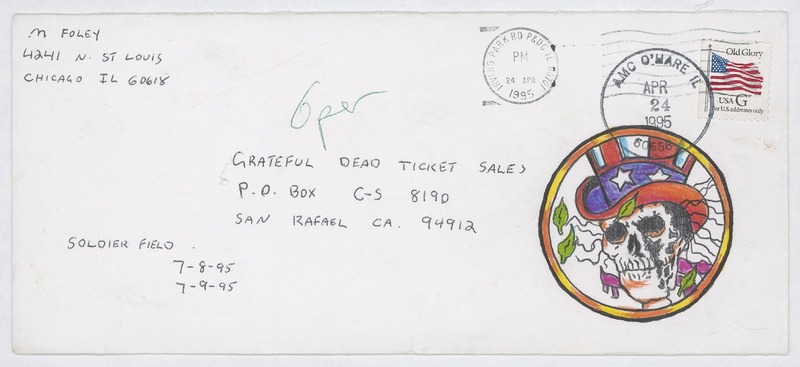 M FOLEY
4241 N. ST LOUIS
CHICAGO IL 60618
IRVING PARK RD P&DC IL 60701
PM
24 APR
1995
AMC O'HARE IL
APR
24
1995
60666
Old Glory
USA G
For U.S. addresses only
6 per
GRATEFUL DEAD TICKET SALES
P.O. BOX C-S 8190
SAN RAFAEL CA. 94912
SOLDIER FIELD.
7-8-95
7-9-95